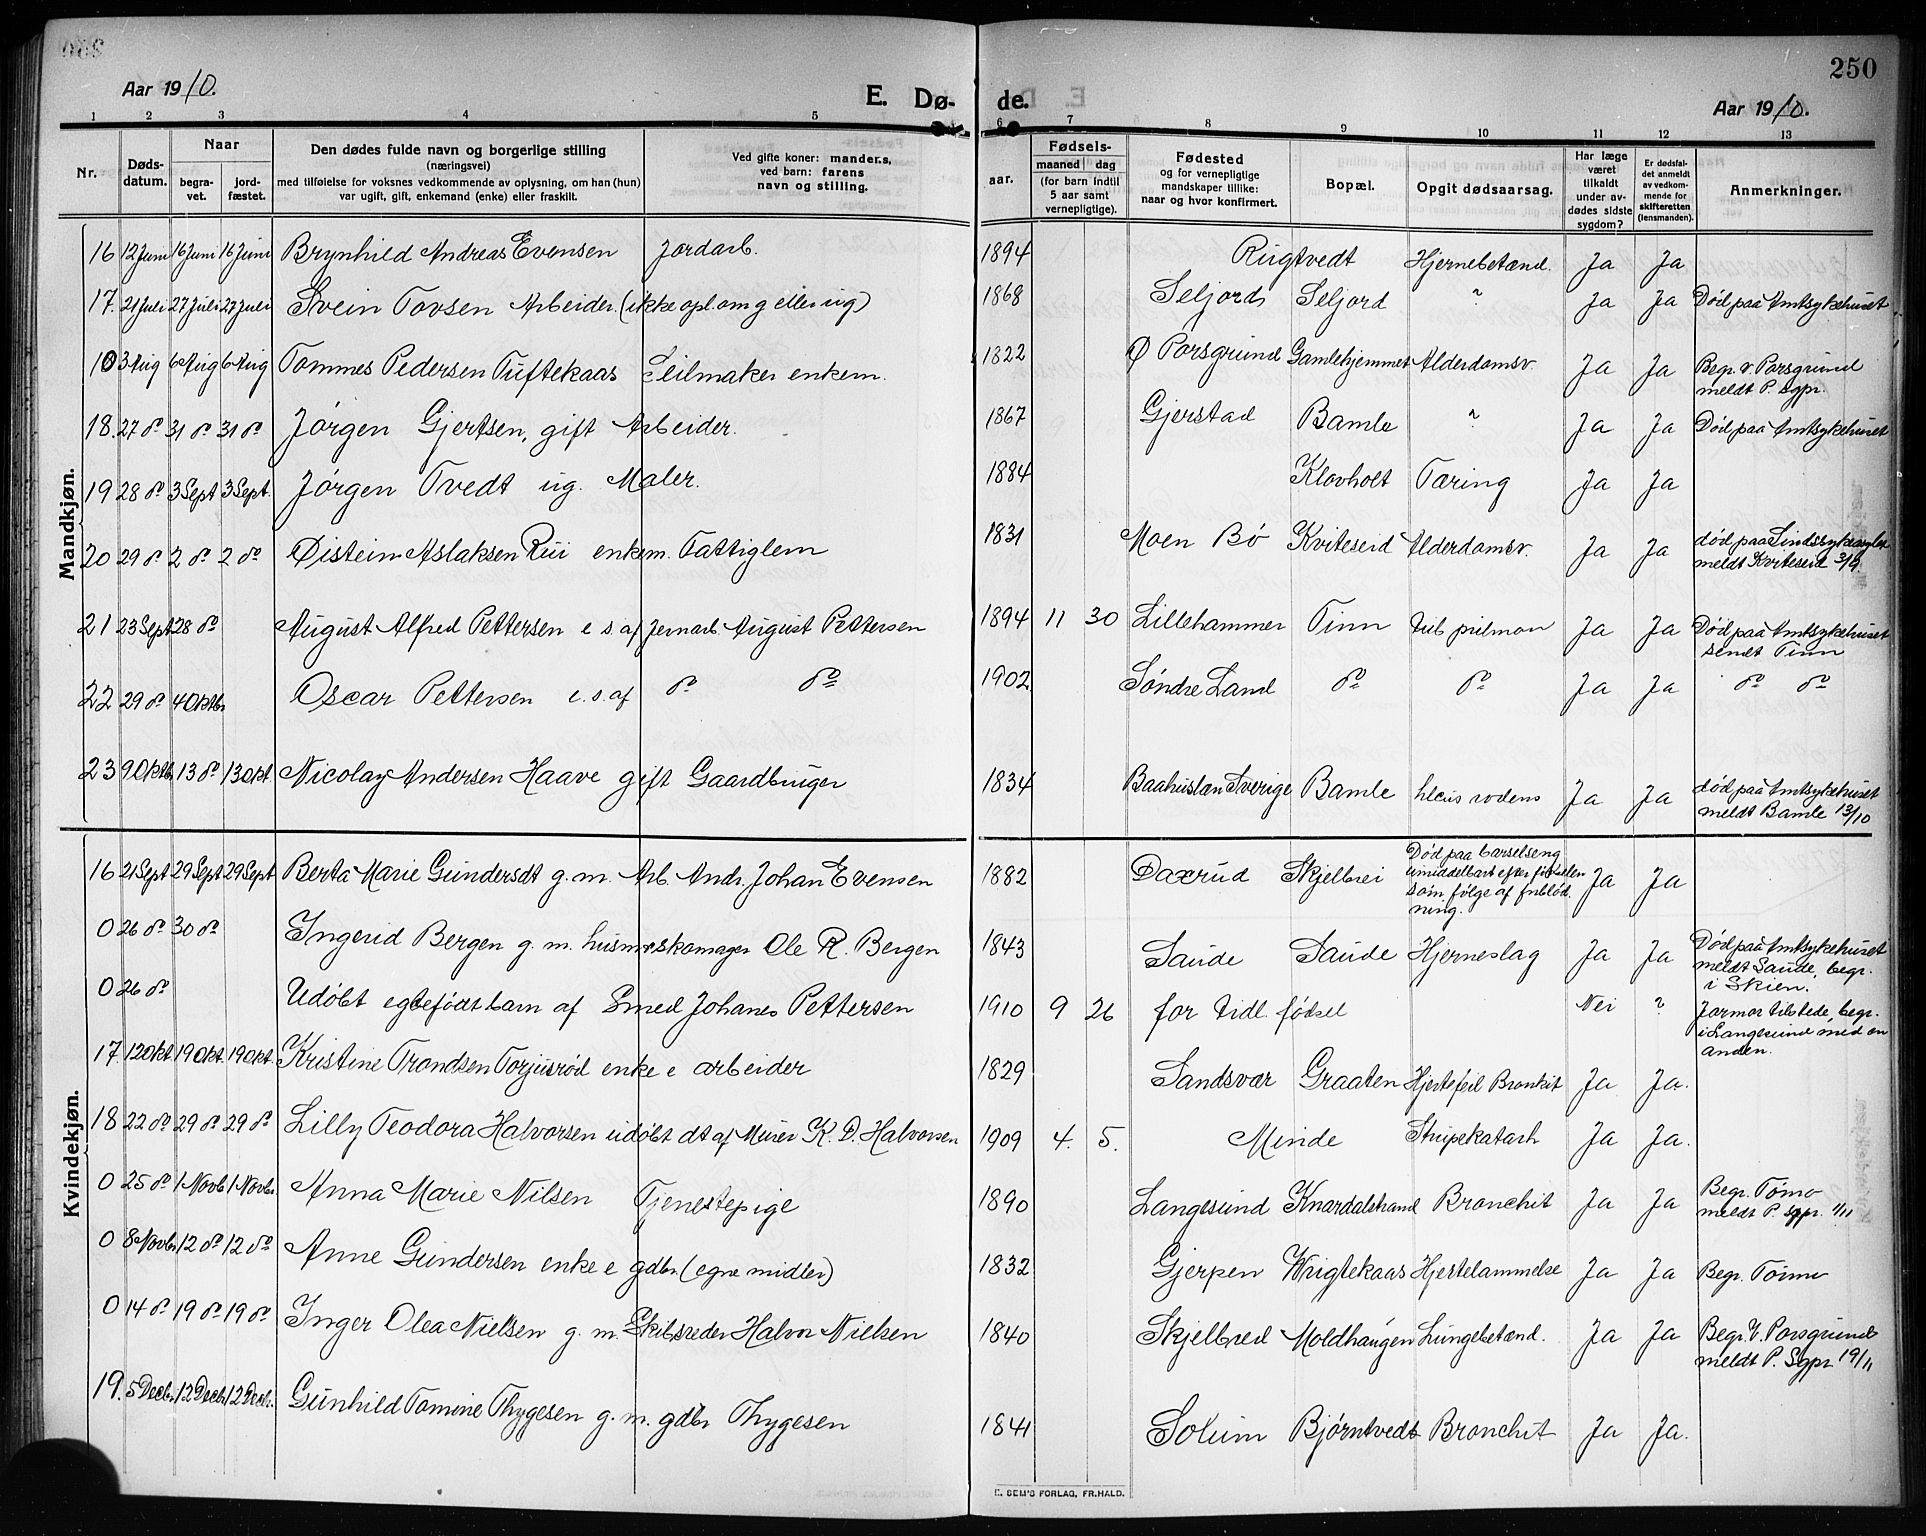 250
Aar 1910.
E. Dø-
de.
Aar 1910.
1 2 3 4 5 6 7 8 9 10 11 12 13
Nr.
Døds-
datum.
Naar
begra-
vet.
jord-
fæstet.
Den dødes fulde navn og borgerlige stilling
(næringsvei)
med tilføielse for voksnes vedkommende av oplysning, om han (hun)
var ugift, gift, enkemand (enke) eller fraskilt.
Ved gifte koner: mandens,
ved barn: farens
navn og stilling.
Fødsels-
aar.
maaned dag
(for barn indtil
5 aar samt
vernepligtige).
Fødested
og for vernepligtige
mandskaper tillike:
naar og hvor konfirmert.
Bopæl.
Opgit dødsaarsag.
Har læge
været
tilkaldt
under av-
dødes sidste
sygdom?
Er dødsfal-
det anmeldt
av vedkom-
mende for
skifteretten
(lensmanden).
Anmerkninger.
Mandkjøn.
16 12 Juni 16 Juni 16 Juni Brynhild Andreas Evensen Jordarb. 1894 Rugtvedt Hjernebetænd. Ja Ja
17. 21 Juli 27 Juli 27 Juli Svein Tovsen Arbeider (ikke opl. om g eller ug) 1868 Seljord Seljord " Ja Ja Død paa Amtsykehuset
0 3 Aug 6 Aug 6 Aug Tommes Pedersen Tuftekaas Seilmaker enkem. 1822 Ø Porsgrund Gamlehjemmet Alderdomsv. Ja Ja Begr. V. Porsgrund
meldt P. sgpr.
18. 27 do 31 do 31 do Jørgen Gjertsen, gift Arbeider. 1867 Gjerstad Bamle " Ja Ja Død paa Amtsykehuset
19 28 do 3 Sept 3 Sept. Jørgen Tvedt ug. Maler. 1884 Klovholt Tæring Ja Ja
20 29 do 2 do 2 do Øistein Aslaksen Rui enkem. Fattiglem 1831 Moen Bø Kviteseid Alderdomsv. Ja Ja død paa Sindssykeasylet
meldt Kviteseid 3/9.
21 23 Sept 28 do August Alfred Pettersen e s. af Jernarb. August Pettersen 1894 11 30 Lillehammer Tinn tub pulmon Ja Ja Død paa Amtsykehuset
sendt Tinn
22 29 do 4 Oktbr Oscar Pettersen e. s. af do do 1902 Søndre Land do do Ja Ja do do
23 9 Oktb. 13 do 13 Okt. Nicolay Andersen Haave gift Gaardbruger 1834 Baahuslæn Sverige Bamle ulcus rodens Ja Ja død paa Amtsykehuset
meldt Bamle 13/10
Kvindekjøn.
16 21 Sept 29 Sept 29 Sept Berta Marie Gundersdt g. m. Arb. Andr. Johan Evensen 1882 Daxrud Skjelbrei Død paa barselseng
umiddelbart efter fødselen
som følge af forblød-
ning. Ja Ja
0 26 do 30 do Ingerid Bergen g. m. husm skomager Ole R. Bergen 1843 Saude Saude Hjerneslag Ja Ja Død paa Amtsykehuset
meldt Saude, begr.
i Skien.
0 26 do Udøbt egtefødt barn af Smed Johanes Pettersen 1910 9 26 for tidl. fødsel Nei " Jormor tilstede, begr.
i Langesund med en
anden.
17. 12 Okt 19 Okt. 19 Okt Kristine Trondsen Torjusrød enke e arbeider 1829 Sandsvær Graaten Hjertefeil Bronkit Ja Ja.
18 22 do 29 do 29 do Lilly Teodora Halvorsen udøbt dt af Murer K. D. Halvorsen 1909 4. 5. Minde Strupekatarh Ja Ja.
0 25 do 1 Novb 1 Novbr. Anna Marie Nilsen Tjenestepige 1890 Langesund Knardalstrand Bronchit Ja Ja Begr. Tømo
meldt P. sgpr. 1/11
0 8 Novbr 12 do 12 do Anne Gundersen enke e gdbr (egne midler) 1832 Gjerpen Vrigtekaas Hjertelammelse Ja Ja Begr. Tømo
0 14 do 19 do 19 do Inger Olea Nielsen g. m. Skibsreder Halvor Nielsen 1840 Skjelbred Moldhaugen Lungebetænd. Ja Ja Begr. V. Porsgrund
meldt P. Sgpr 19/11
19. 5 Decbr 12 Decbr 12 Decbr. Gunhild Tomine Thygesen g. m. gdbr Thygesen 1841 Solum Bjørntvedt Bronchit Ja Ja.
E. SEM'S FORLAG, FR.HALD.